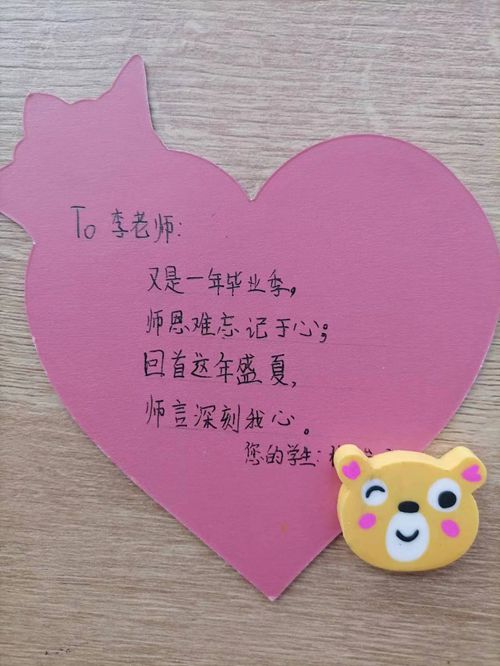 To 李老师:
又是一年毕业季，
师恩难忘记于心；
回首这年盛夏，
师言深刻我心。
您的学生: